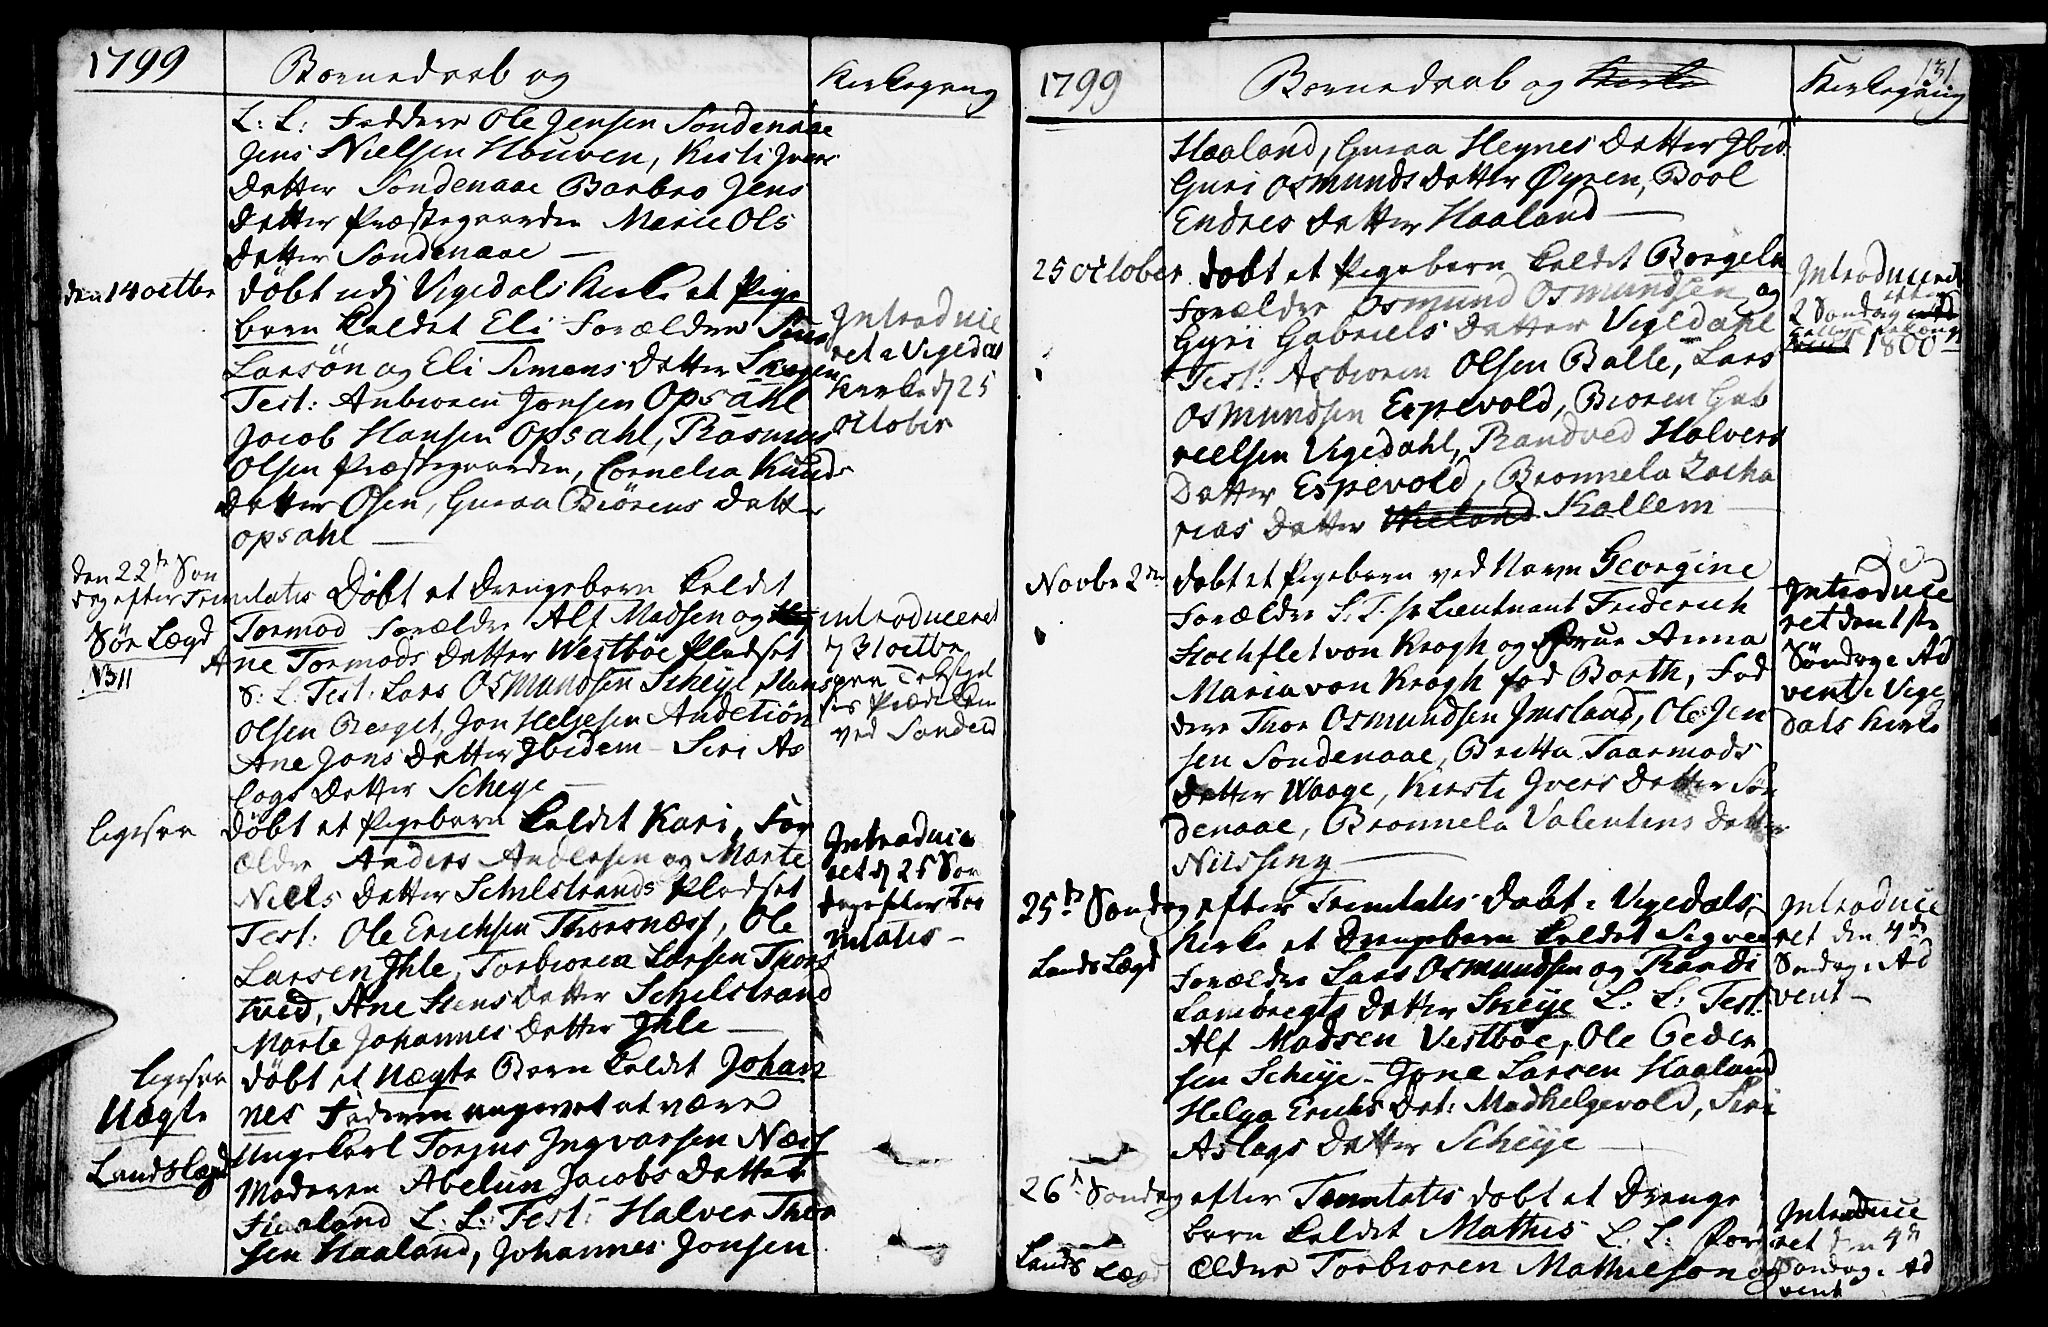 1799
Børnedaab og
Kirkegang
L: L: Faddere Ole Jensen Søndenaae
Jens Nielsen Houven, Kisti Ivers
Datter Søndenaae Barbro Jens
Datter Præstegaarden Marie Ols
Datter Søndenaae —
den 14 octbr
døbt udj Vigedals Kirke et Pige
barn kaldet Eli Forældre
Larsøn og Eli Simens Datter
Test: Anbiøren Jonsen Opsahl
Jacob Hansen Opsahl, Rasmus
Olsen Præstegaarden, Cornelia Knuds
Datter Ølen, Guroa Biørens Datt
opsahl —
Introduce
ret i Vigedal
Kirke d 25
October
den 22de Søn
dag efter Trinitatis Døbt et Drengebarn kaldet
Sør Lægd
1311
Tormod Forældre Alf Madsen og
Ane Tormods Datter Westbøe Pladset
S: L: Test: Lars Osmundsen Scheye, Hans
Olsen Berget, Jon Helgesen Andetiøn
Ane Jons Datter Ibidem – Siri As
lags Datter Scheye —
introduceret
d 31 octbr
ved Sandeid
ligesaa
døbt et Pigebarn kaldet Kari, For
ældre Anders Andersen og Marte
Niels Datter Schelstrands Pladset
Test: Ole Erichsen Thorsnæss, Ole
Larsen Ihle, Torbioren Larsen Thors
tved, Ane Hens Datter Schelstrand
Marte Johannes Datter Ihle —
Introduce
ret d 25 Søn
dag efter Tri
nitatis –
ligesaa
Uægte
Landslægd
døbt et uægte Barn kaldet Johan
nes Faderen angivet at være
Ungekarl Torjus Ingvarsen Næss
Moderen Abelun Jacobs Datter
Haaland L: L: Test: Halvor Thor
sen Haaland, Johannes Jonsen
1799
Børnedaab og
Kirkegang
131
Haaland, Guroa Heynes Datter Ibid
Guri Osmunds Datter Øyren, Boel
Endres Datter Haaland —
25 October
døbt et Pigebarn kaldet Borgela
Forældre Osmund Osmundsen og
Gyri Gabriels Datter Vigedahl
Test: Asbioren Olsen Balle, Lars
Osmundsen Espevold, Bioren Gab
rielsen Vigedahl, Randved Halvers
Datter Espevold, Bronnela Zacha
rias Datter Kallem —
Introduceret
2 Søndag efter
1800
Novbr 2den
døbt et Pigebarn ved Navn Georgine
Forældre S. T. hr Lieutnant Friderich
Hochflet von Krogh og Frue Anna
Maria von Krogh fød Borth, Fad
dere Thor Osmundsen Imsland, Ole Jen
sen Søndenaae, Britta Taarmods
Datter Waage, Kirsti Ivers Datter Søn
denaae, Bronnela Valentins Datter
Nilssing —
Introduce
ret den 1ste
Søndag i Ad
vent i Vige
dals Kirke
25de Søndag efter Trinitatis Døbt i Vigedals
Lands Lægd
Kirke et Drengebarn kaldet Sigved
Forældre Lars Osmundsen og Randi
Lambregts Datter Skeye L: L: Test:
Alf Madsen Vestbøe, Ole Geder
sen Scheye – Jone Larsen Haaland
Helga Erichs Dat: Madhelgevold, Siri
Aslags Datter Scheye —
Introduce
ret den 4de
Søndag i Ad
vent –
26de Søndag efter Trinitatis døbt et Drenge
Lands Lægd
barn kaldet Mathis L: L: For
ældre Torbioren Mathiesøn og
Introduce
ret den 4de
Søndag i Ad
vent